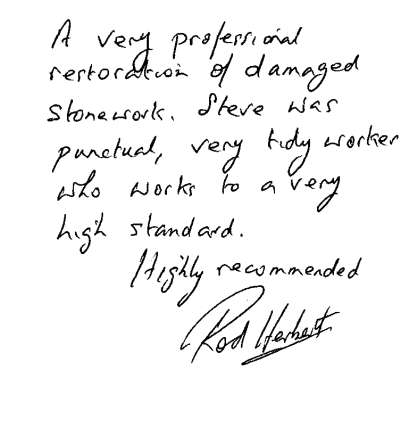 A very professional
restoration of damaged
stonework. Steve was
punctual, very tidy worker
who works to a very
high standard.
Highly recommended
Rod Herbert